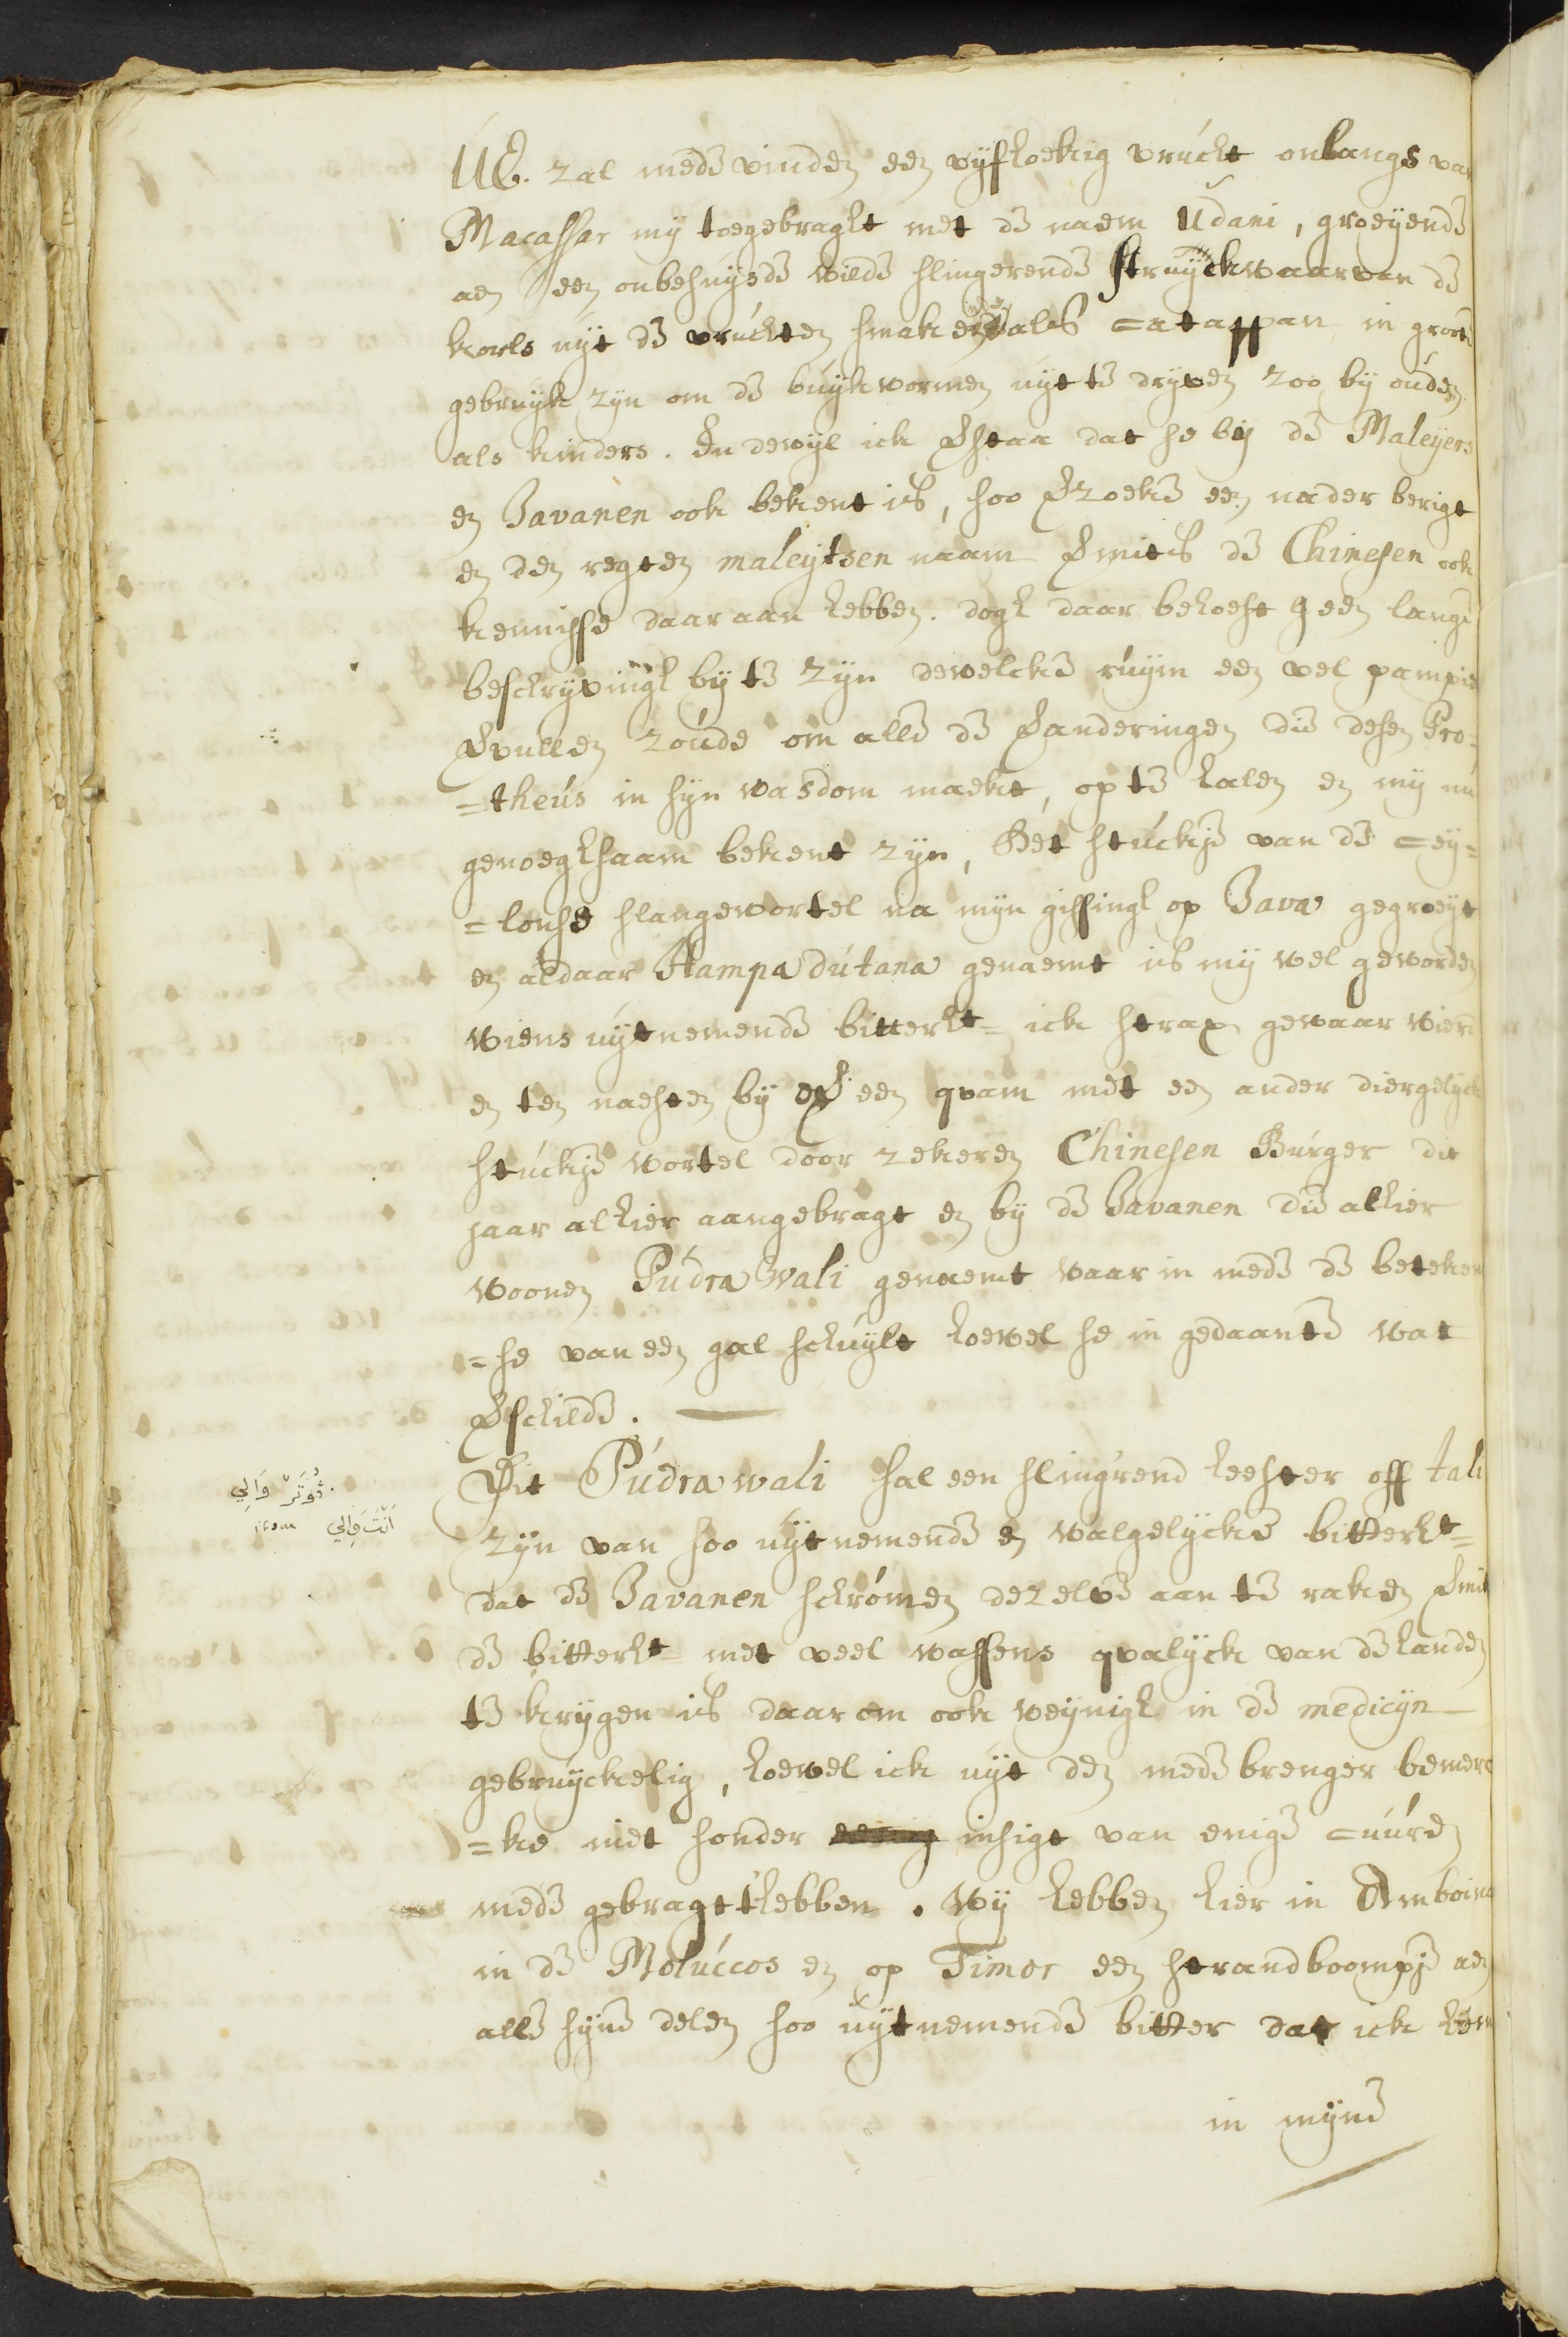 UE. zal mede vinden een vyfhoekig vrucht onlangs van
Macassar my toegebraght met de naem Udani, groeyende
aen een onbesuysde wilde slingerende struyck waarvan de
korls uyt de vruchten smakende als Catappan in groote
gebruyk zyn om de buykwormen uyt te dryven zoo by ouden
als kinders. En dewyl ick versta dat se by de Maleyers
en Javanen ook bekent is, soo verzoeke een nader berigt
en den regten maleytsen naam vermits de Chinesen ook
kennisse daar aan hebben. dogh daar behoeft geen lange
beschryvingh by te zyn dewelcke ruym een vel pampier
vervullen zoude om alle de veranderingen die desen Pro=
=theus in syn wasdom maekt, op te halen en my nu
genoeghsaam bekent zyn, Het stuckje van de Cey=
=lonse slangewortel na myn gissingh op Java gegroeyt
en aldaar Hampadutana genaemt is my wel geworden
wiens uytnemende bitterht= ick strax gewaar wierd
en ten naesten by over een quam met een ander diergelyck
stuckje wortel door zekeren Chinesen Burger dit
jaar alhier aangebragt en by de Javanen die alhier
woonen Pudra Wali genaemt waar in mede de beteken
=se van een gal schuylt hoewel se in gedaante wat
verschilde.
Dit Pudrawali sal een slingrend heester off tali
zyn van soo uytnemende en walgelycke bitterht=
dat de Javanen schromen dezelve aan te raken vermits
de bitterht= met veel wassens qualyck van de handen
te krygen is daarom ook weynigh in de medicyn
gebruyckelig, hoewel ick uyt den mede brenger bemerc
=ke niet sonder insigt van enige cuuren
mede gebragt t'hebben. Wy hebben hier in Amboina
in de Moluccos en op Timor een strandboompje aen
alle syne delen soo uytnemende bitter dat ick hem
in myne
ڤُوتَرْ وَالِي
item اَنْتَ وَالِي